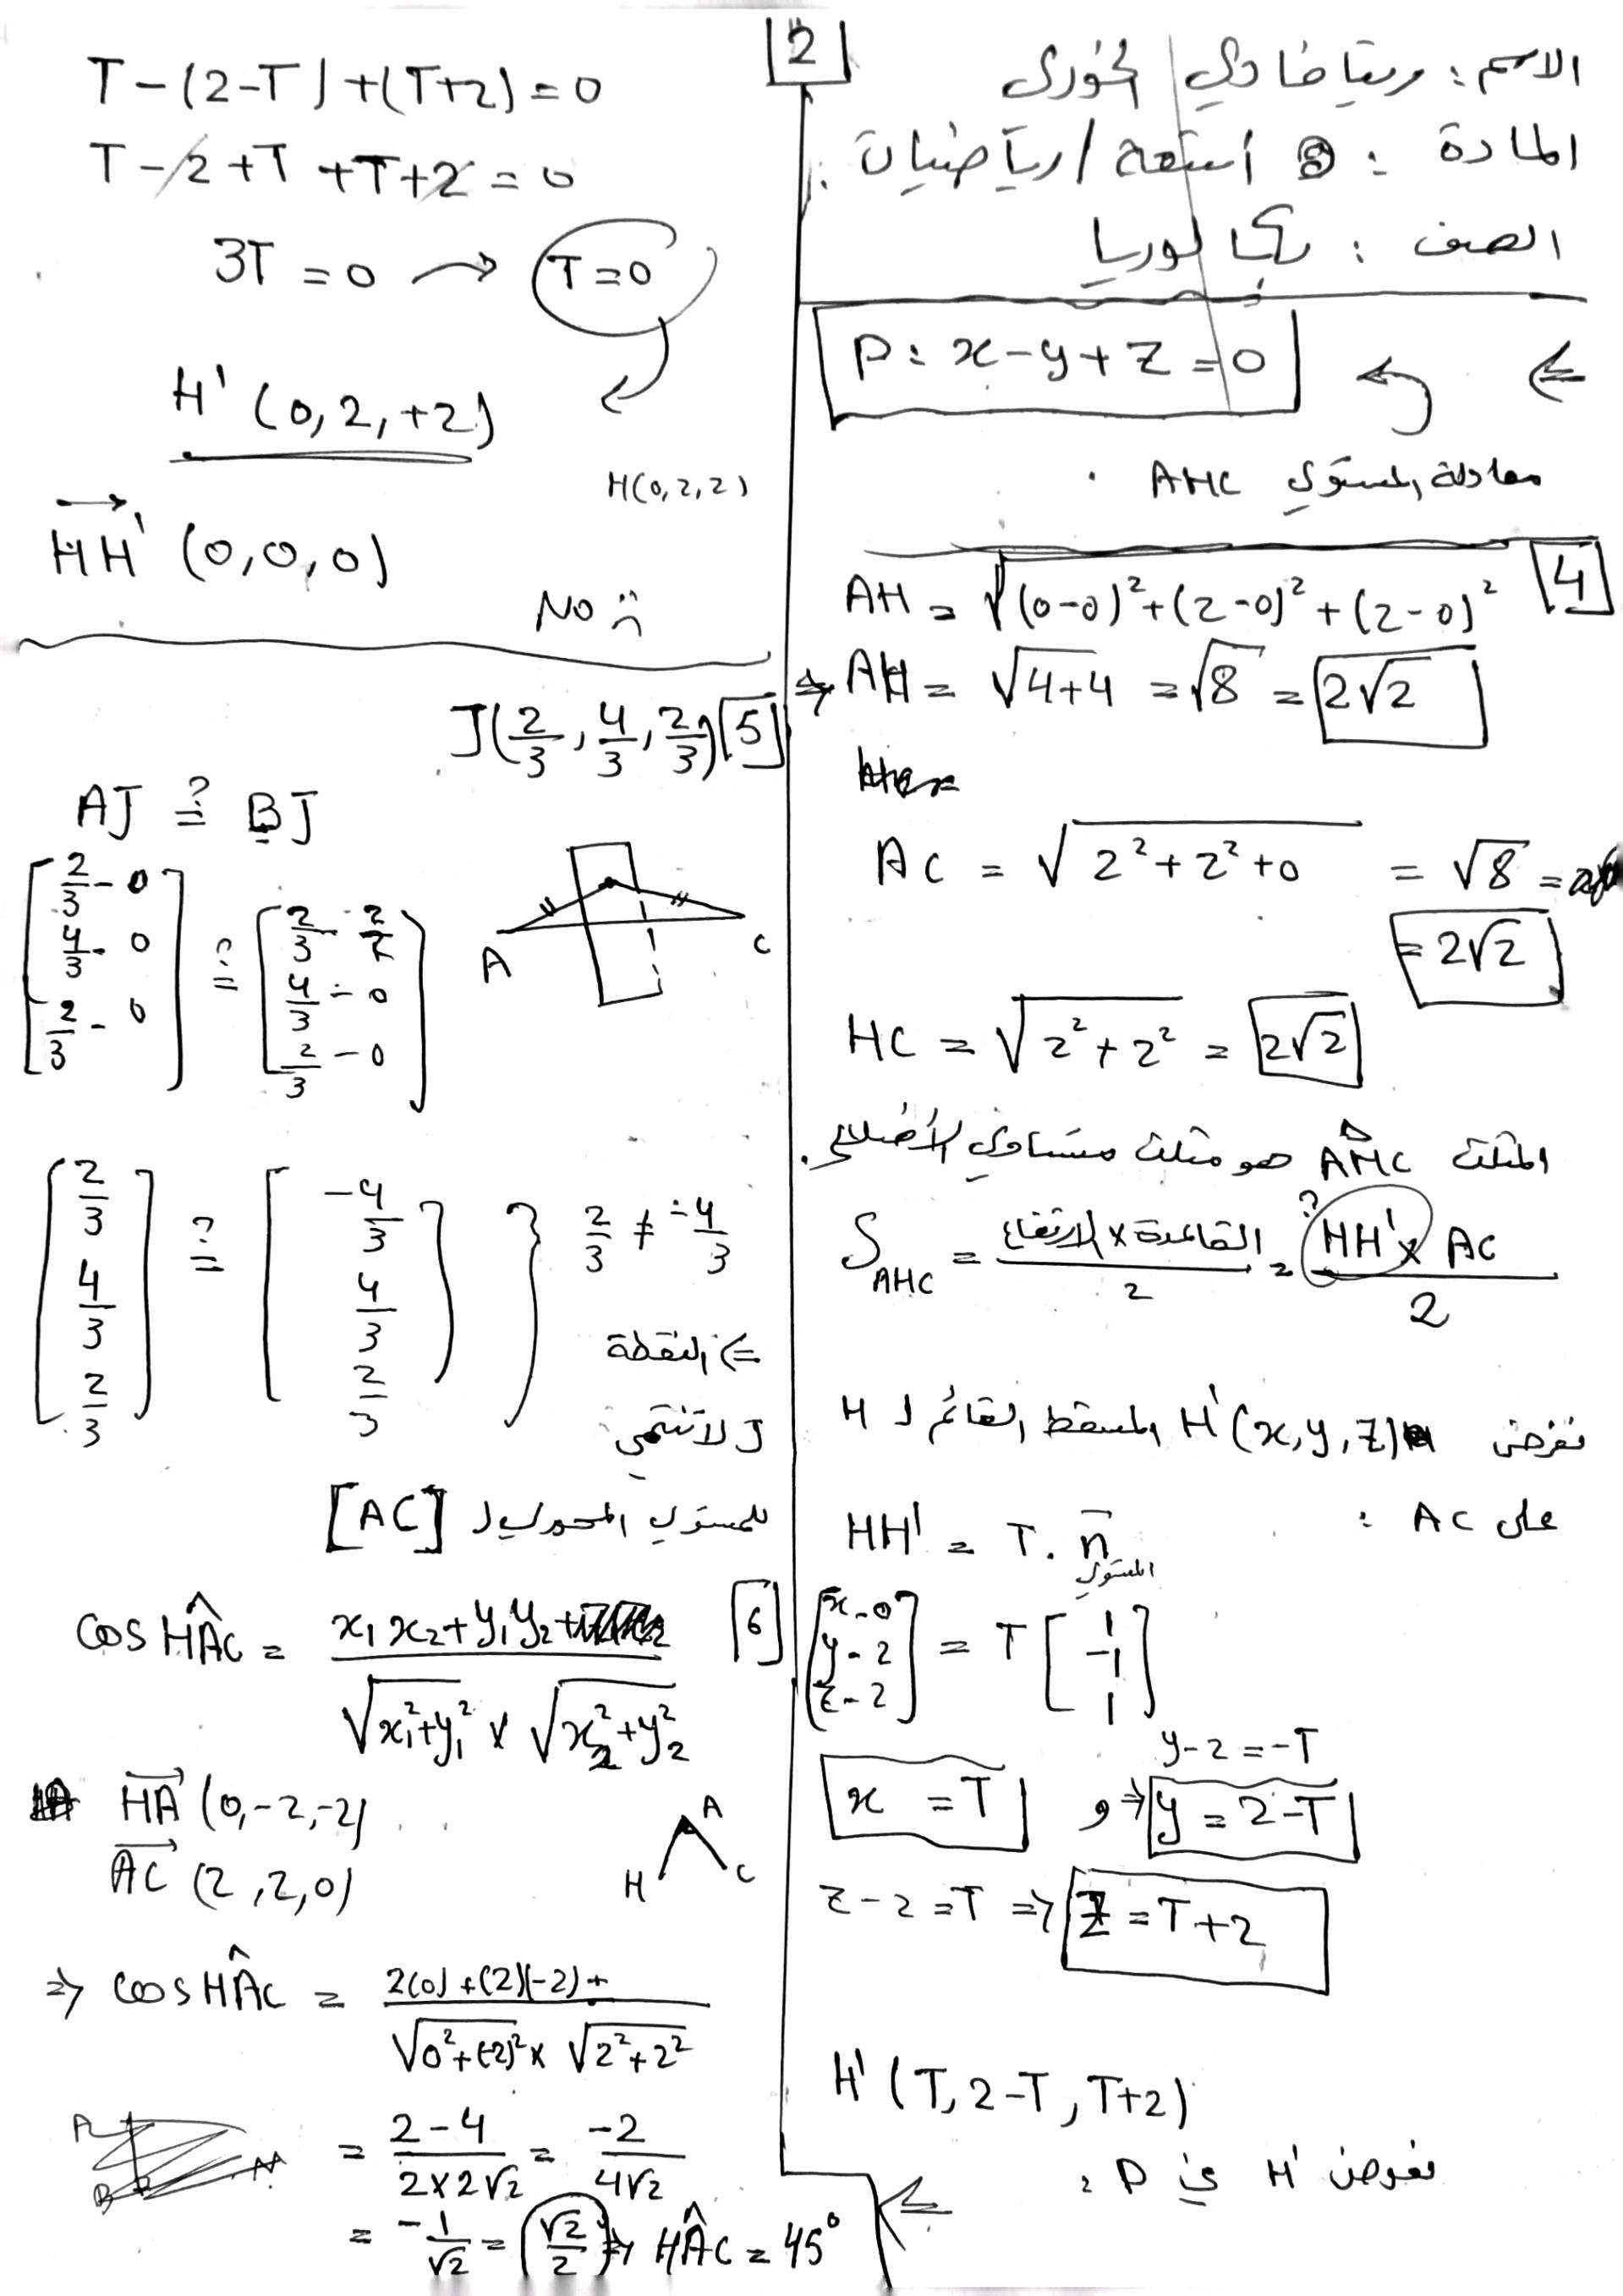 الاسم : ريتا فادي الخوري
المادة : أتمتة / رياضيات
الصف : بكالوريا
2
P: x-y+z=0
معادلة المستوي AHC .
4
AH = √(0-0)²+(2-0)²+(2-0)²
⇒ AH = √4+4 = √8 = 2√2
AC = √2²+2²+0 = √8 =
= 2√2
HC = √2²+2² = 2√2
المثلث AHC هو مثلث متساوي الأضلاع.
S AHC = القاعدة × الارتفاع / 2 = HH' × AC / 2
?
نفرض H'(x,y,z) المسقط القائم لـ H
على AC :
HH' = T. n المستوي
[x-0 y-2 z-2] = T [1 -1 1]
y-2=-T
x = T و ⇒ y = 2-T
z-2=T ⇒ Z=T+2
H'(T, 2-T, T+2)
نعوض H' في P :
T-(2-T)+(T+2)=0
T-2+T+T+2=0
3T=0 → T=0
H'(0,2,+2)
H(0,2,2)
HH' (0,0,0)
No :(
5
J(2/3, 4/3, 2/3)
AJ ?= BJ
[2/3-0 4/3-0 2/3-0] ?= [2/3-2/1 4/3-0 2/3-0]
A C
[2/3 4/3 2/3] ?= [-4/3 4/3 2/3] } 2/3 ≠ -4/3
⇐ النقطة
J لا تنتمي
للمستوي المحوري لـ [AC]
6
cos HÂC = x₁x₂+y₁y₂+ / √x₁²+y₁² × √x₂²+y₂²
HA (0,-2,-2)
AC (2,2,0)
A
H C
⇒ cos HÂC = 2(0)+(2)(-2)+ / √0²+(-2)² × √2²+2²
= 2-4 / 2×2√2 = -2 / 4√2
= -1/√2 = √2/2 ⇒ HÂC = 45°